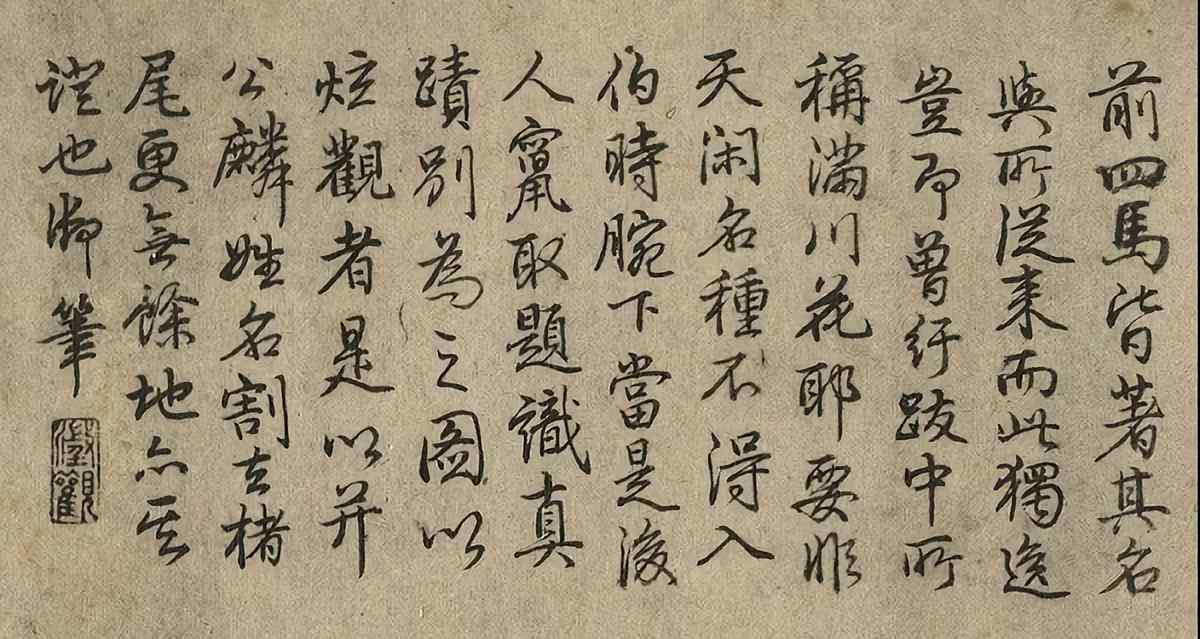 前四馬皆著其名
與所從来而此獨逸
豈即曾紆跋中所
稱滿川花耶要非
天閑名種不得入
伯時腕下當是後
人竄取題識真
蹟別為之圖以
炫觀者是以并
公麟姓名割去楮
尾更無餘地亦其
證也御筆
澂觀